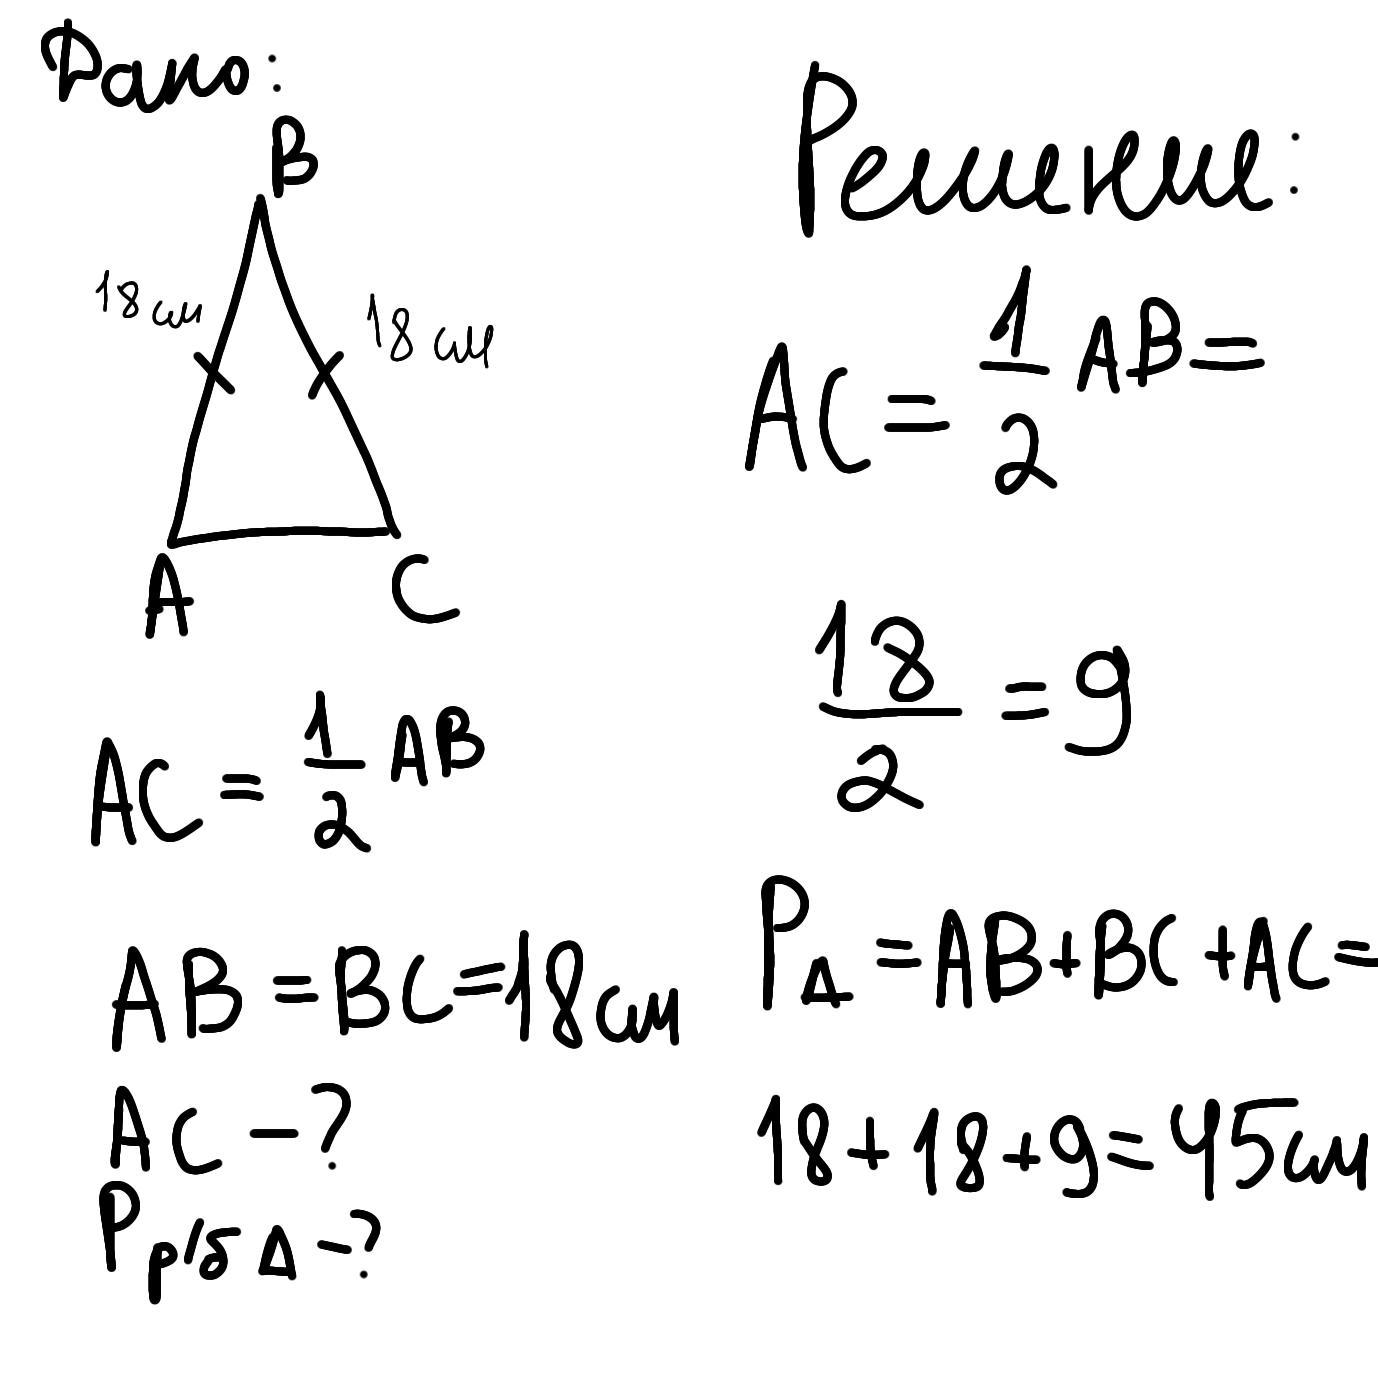 Дано:
B
18 см
18 см
A
C
AC = 1/2 AB
AB = BC = 18 см
AC - ?
P р/б Δ - ?
Решение:
AC = 1/2 AB =
18/2 = 9
P Δ = AB + BC + AC =
18 + 18 + 9 = 45 см